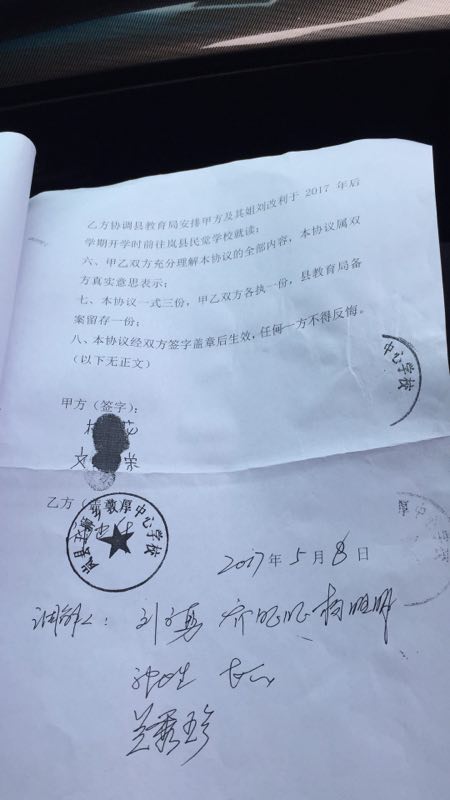 乙方协调县教育局安排甲方及其姐刘改利于 2017 年后
学期开学时前往岚县民觉学校就读;
六、甲乙双方充分理解本协议的全部内容，本协议属双
方真实意思表示;
七、本协议一式三份，甲乙双方各执一份，县教育局备
案留存一份;
八、本协议经双方签字盖章后生效，任何一方不得反悔。
(以下无正文)
中心学校
甲方(签字):
荣
乙方(
岚县 敦厚中心学校
厚
2017年5月8日
调解人: 刘 勇
兰秀珍